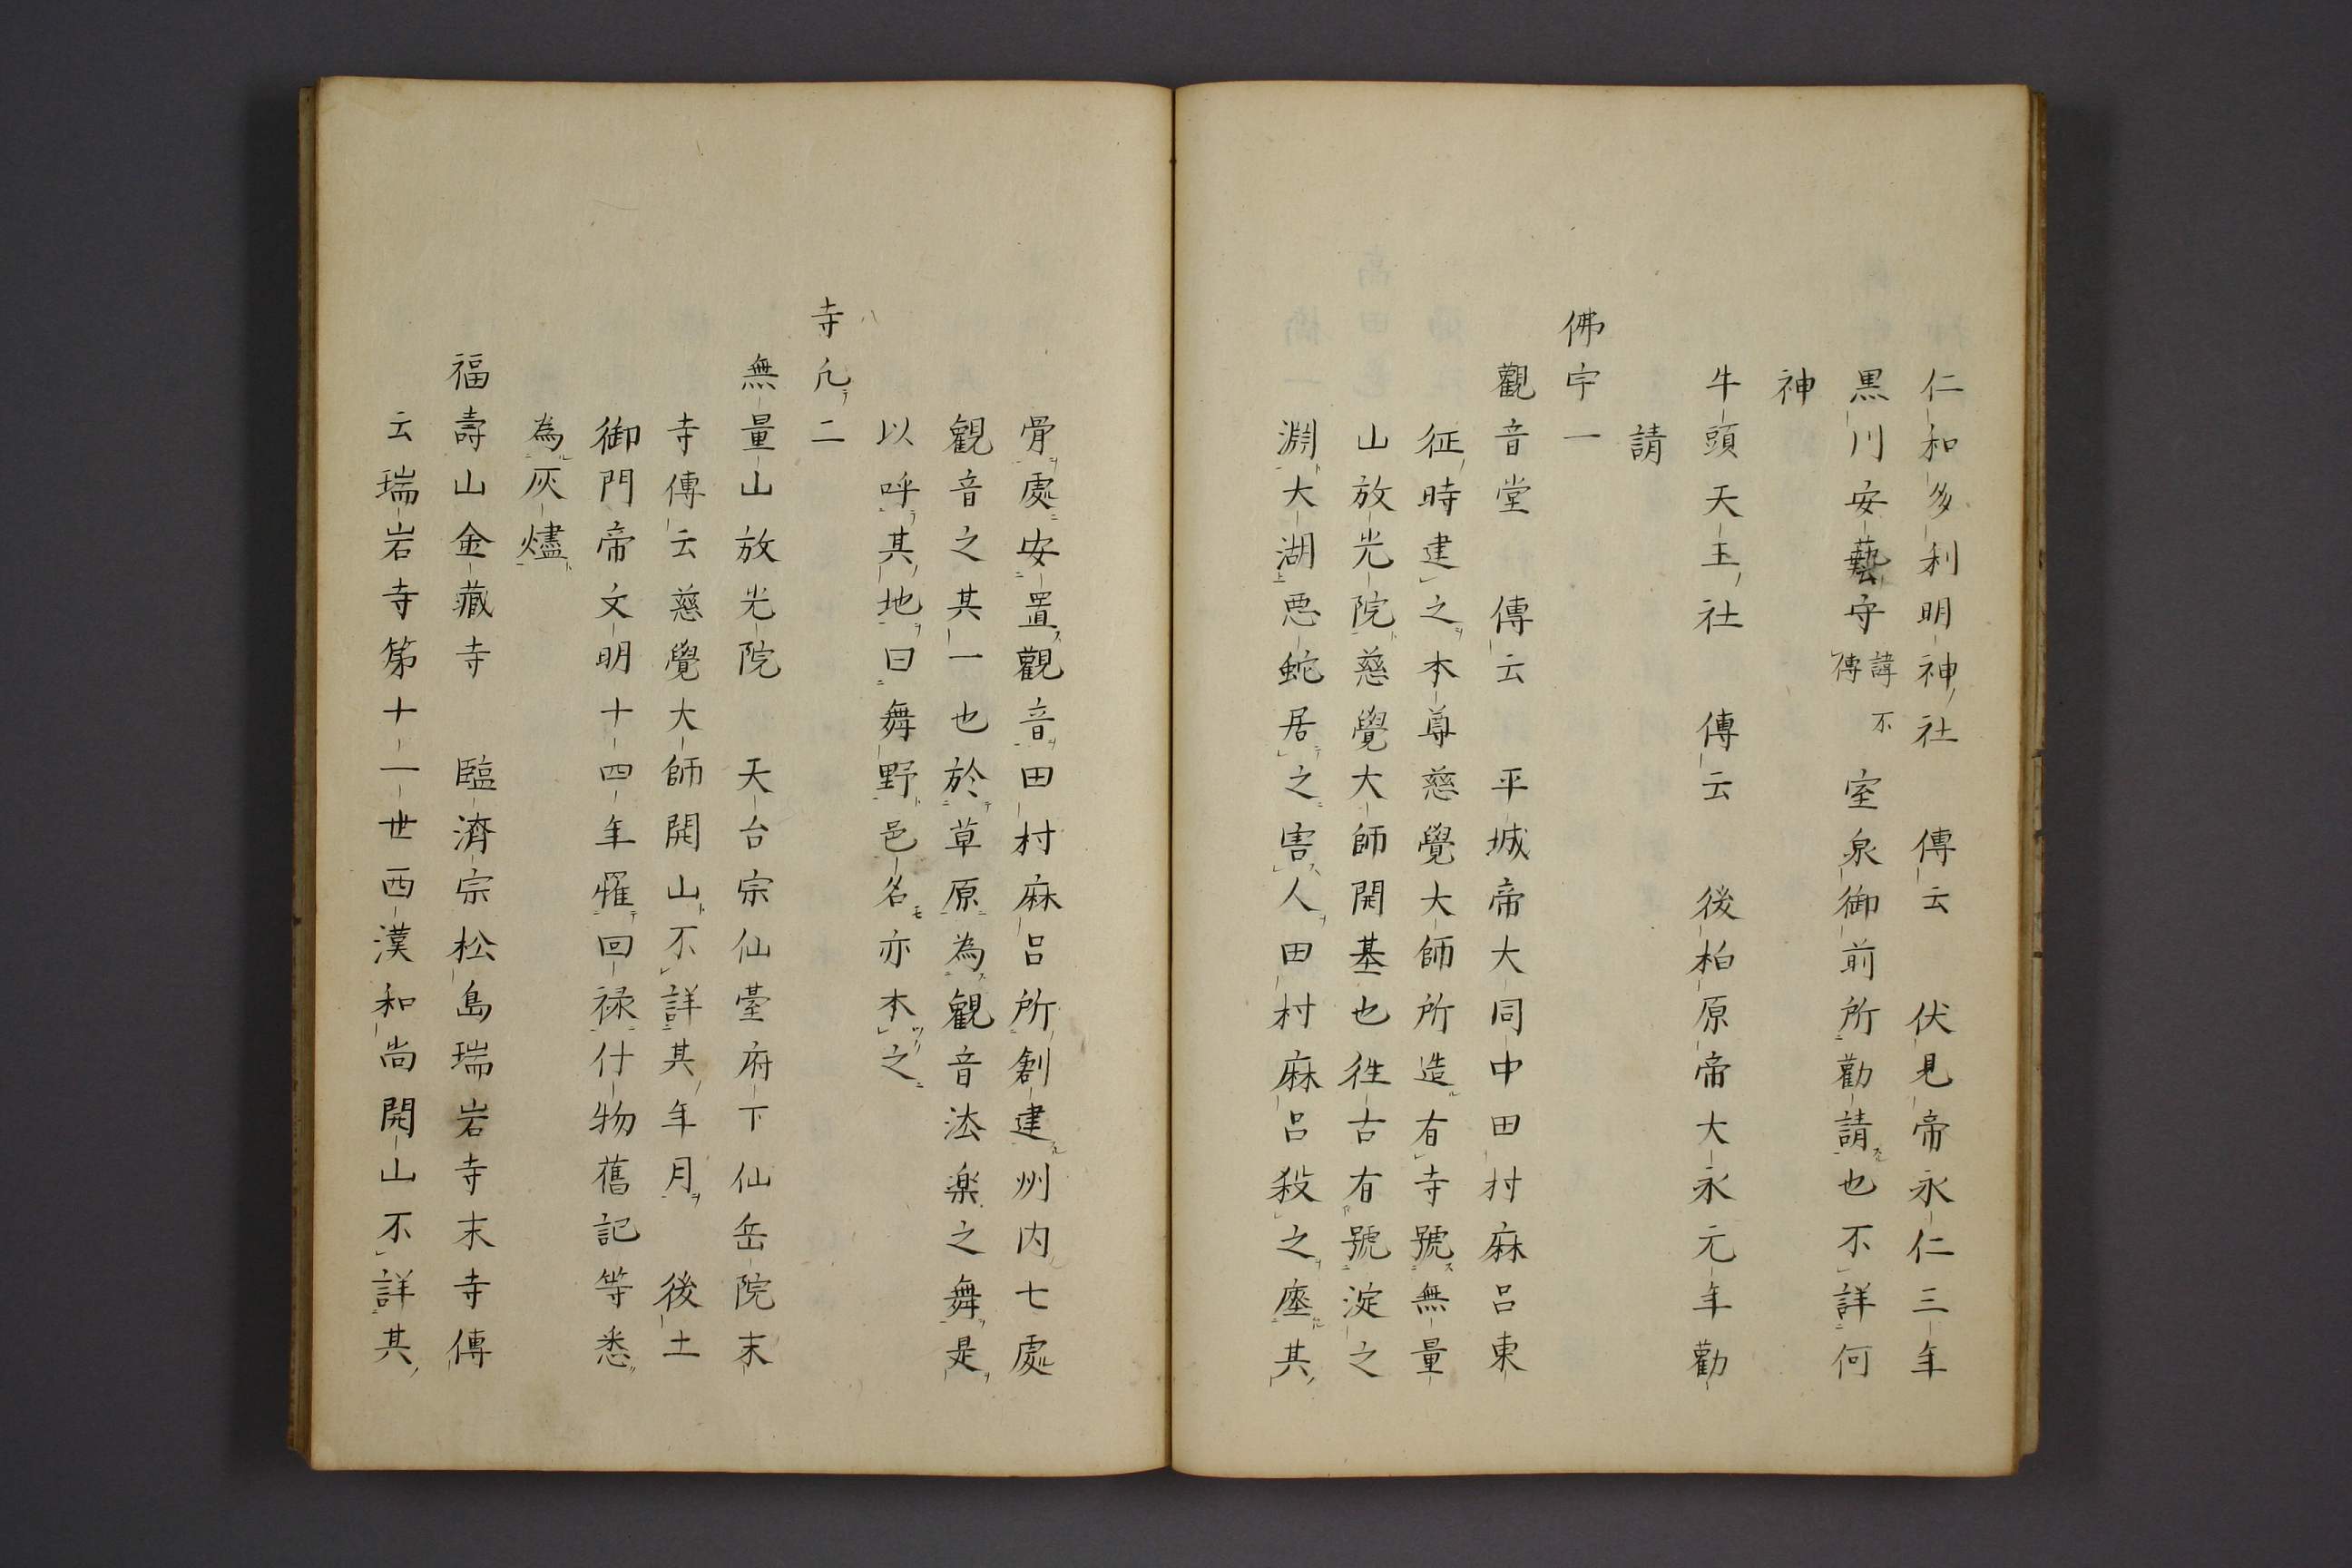 仁和多利明神社　傳云　伏見帝永仁三年
黒川安藝守諱不傳　室泉御前所勸請也不詳何
神
牛頭天王社　傳云　後柏原帝大永元年勸
請
佛宇一
觀音堂　傳云　平城帝大同中田村麻呂東
征時建之本尊慈覺大師所造有寺號無量
山放光院慈覺大師開基也徃古有號淀之
淵大湖悪蛇居之害人田村麻呂殺之瘞其
骨處安置觀音田村麻呂所創建州内七處
觀音之其一也於草原為觀音法楽之舞是
以呼其地曰舞野邑名亦本之
寺凢二
無量山放光院　天台宗仙臺府下仙岳院末
寺傳云慈覺大師開山不詳其年月　後土
御門帝文明十四年罹回禄什物舊記等悉
為灰燼
福壽山金藏寺　臨濟宗松島瑞岩寺末寺傳
云瑞岩寺第十一世西漢和尚開山不詳其